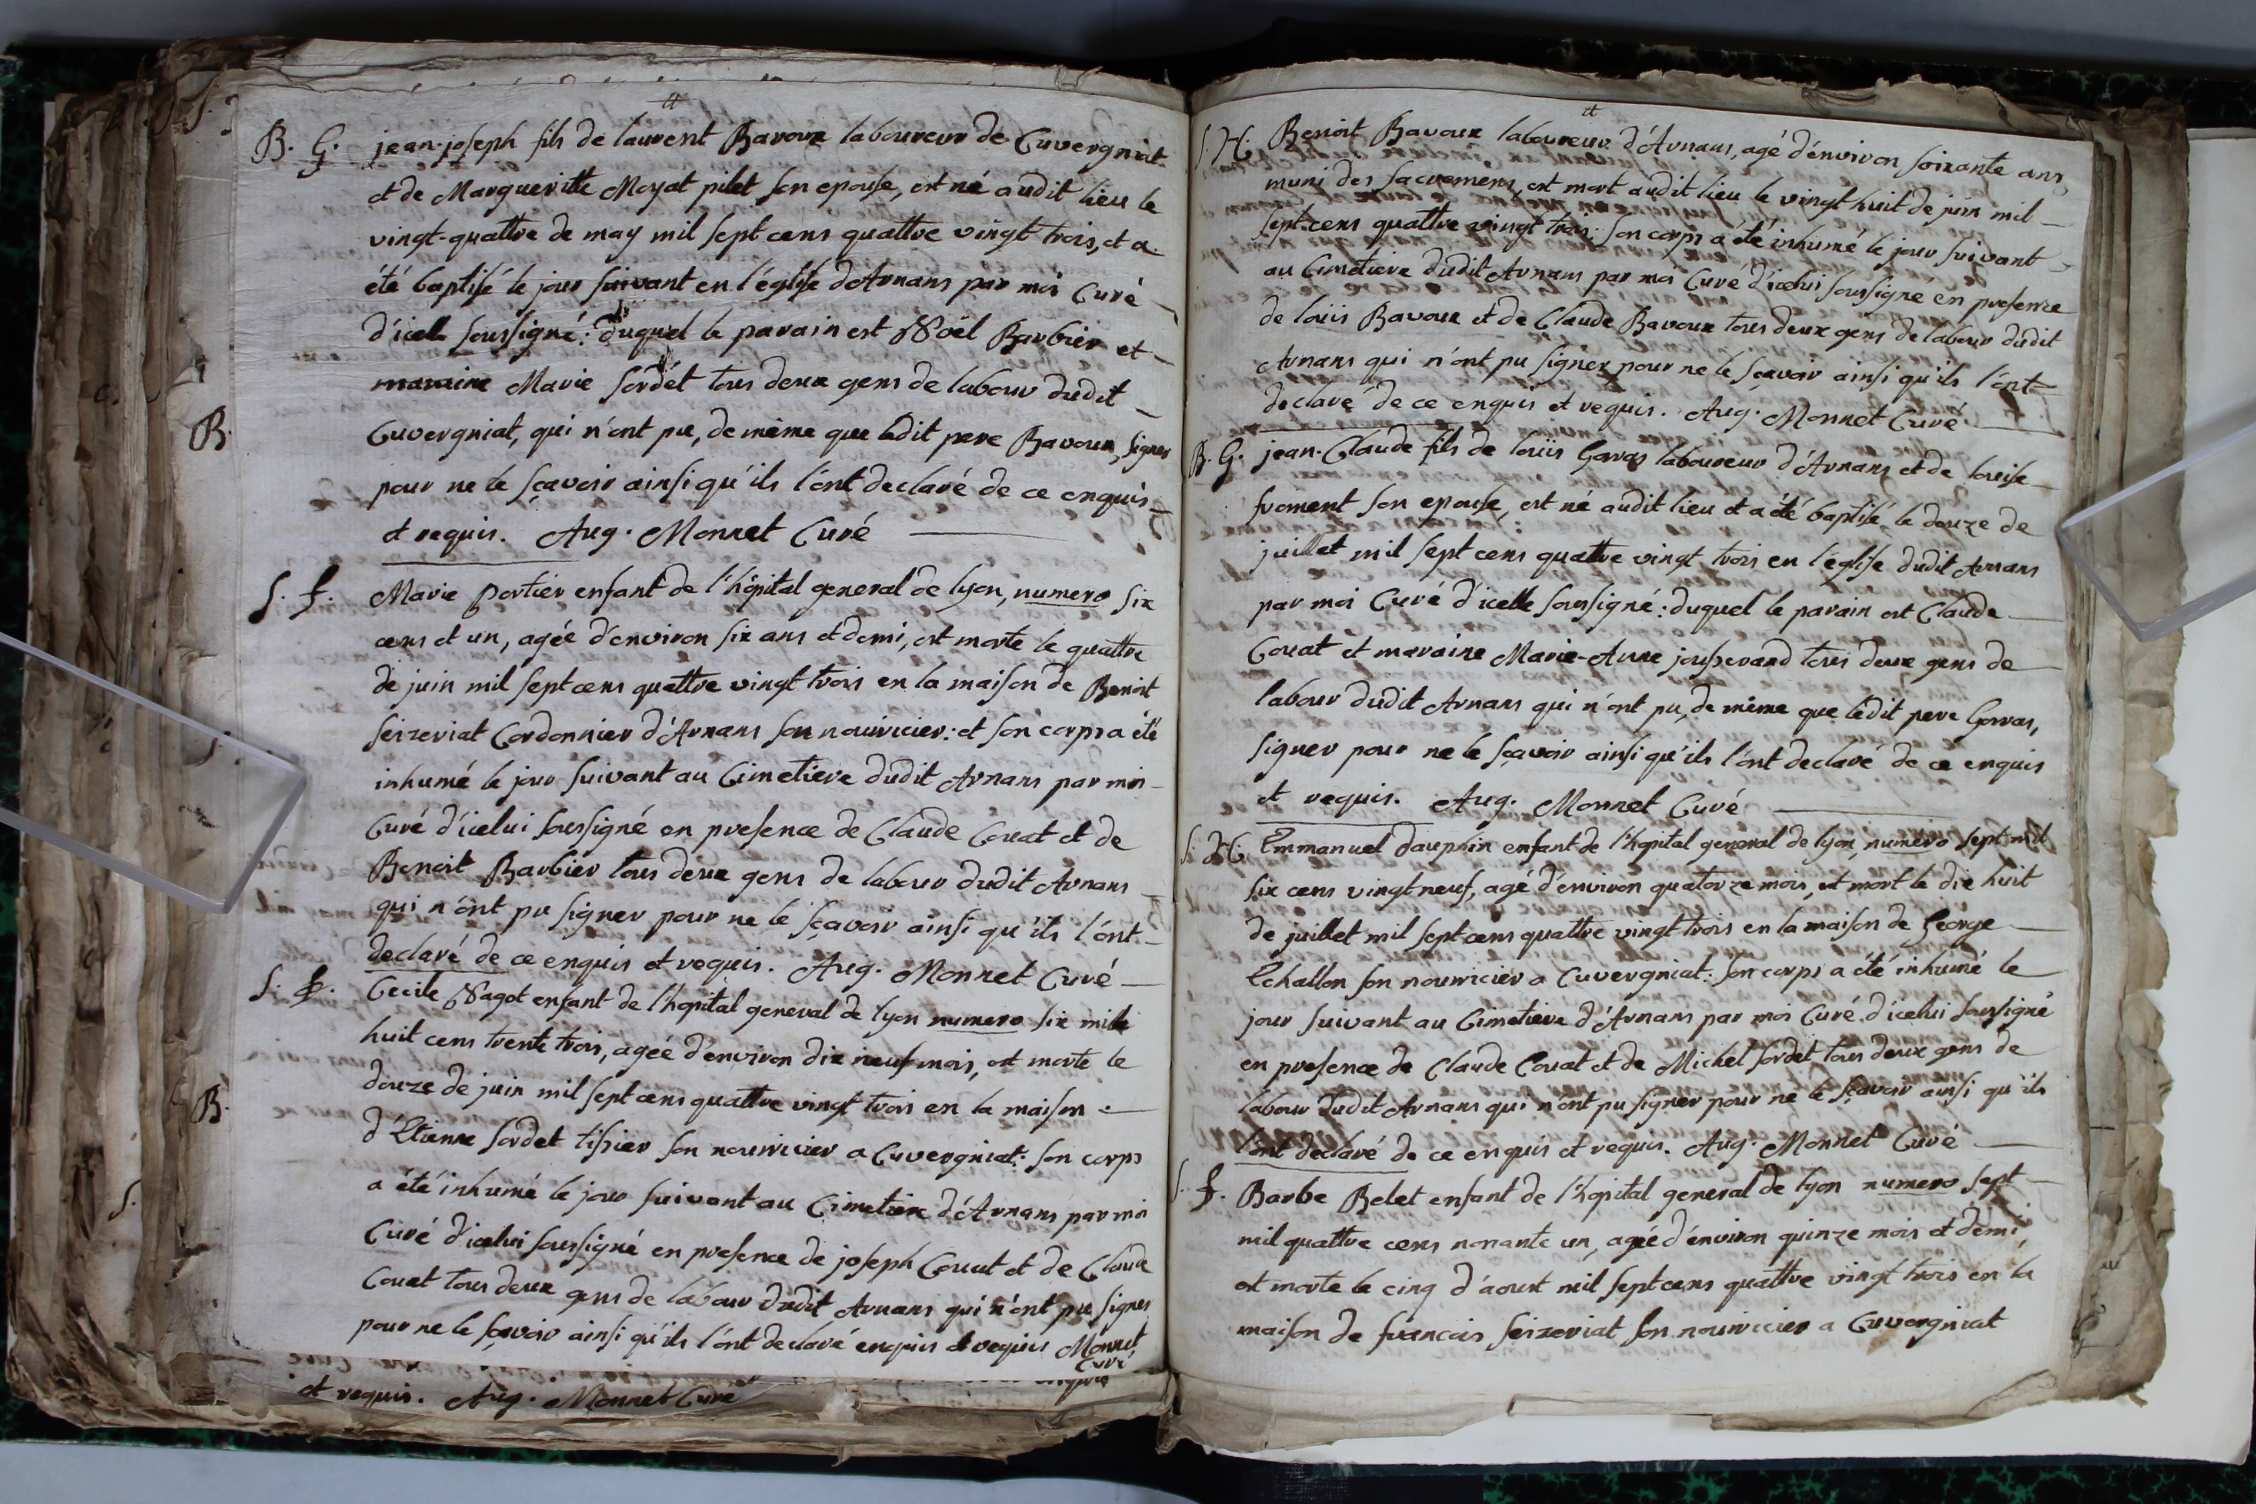 B. G. jean-joseph fils de laurent Bavoux laboureur de Cuvergniat
et de Margueritte Moyat pilet son epouse, est né audit lieu le
vingt-quattre de may mil sept cens quattre vingt trois, et a
été baptisé le jour suivant en l'église d'Arnans par moi Curé
d'icelle soussigné: duquel le parain est Noël Barbier et
maraine Marie Sordet tous deux gens de labour dudit
Cuvergniat, qui n'ont pu, de même que ledit pere Bavoux, signer
pour ne le sçavoir ainsi qu'ils l'ont declaré de ce enquis
et requis. Aug. Monnet Curé
S. f. Marie Portier enfant de l'hôpital general de lyon, numero six
cens et un, agée d'environ six ans et demi, est morte le quattre
de juin mil sept cens quattre vingt trois en la maison de Benoit
Seizeriat Cordonnier d'Arnans son nouricier: et son corps a été
inhumé le jour suivant au Cimetiere dudit Arnans par moi
Curé d'icelui soussigné en presence de Claude Couat et de
Benoit Barbier tous deux gens de labour dudit Arnans
qui n'ont pu signer pour ne le sçavoir ainsi qu'ils l'ont
declaré de ce enquis et requis. Aug. Monnet Curé
S. f. Cecile Nagot enfant de l'hopital general de lyon numero six mille
huit cens trente trois, agée d'environ dix neuf mois, est morte le
douze de juin mil sept cens quattre vingt trois en la maison
d'Etienne Sordet tissier son nourricier a Cuvergniat: son corps
a été inhumé le jour suivant au Cimetiere d'Arnans par moi
Curé d'icelui soussigné en presence de joseph Couat et de Claude
Couat tous deux gens de labour dudit Arnans qui n'ont pu signer
pour ne le sçavoir ainsi qu'ils l'ont declaré enquis et requis Monnet
Curé
et requis. Aug. Monnet Curé
B.
B.
S.
S. H. Benoit Bavoux laboureur d'Arnans, agé d'environ soixante ans,
muni des sacremens, est mort audit lieu le vingt huit de juin mil
sept cens quattre vingt trois: son corps a été inhumé le jour suivant
au Cimetiere dudit Arnans par moi Curé d'icelui soussigné en presence
de loüis Bavoux et de Claude Bavoux tous deux gens de labour dudit
Arnans qui n'ont pu signer pour ne le sçavoir ainsi qu'ils l'ont
declaré de ce enquis et requis. Aug. Monnet Curé
B. G. jean-Claude fils de loüis Gorras laboureur d'Arnans et de louise
froment son epouse, est né audit lieu et a été baptisé le douze de
juillet mil sept cens quattre vingt-trois en l'église dudit Arnans
par moi Curé d'icelle soussigné: duquel le parain est Claude
Couat et maraine Marie-Anne jousserand tous deux gens de
labour dudit Arnans qui n'ont pu, de même que ledit pere Gorras,
signer pour ne le sçavoir ainsi qu'ils l'ont declaré de ce enquis
et requis. Aug. Monnet Curé
S. H. Emmanuel dauphin enfant de l'hopital general de lyon, numero sept mil
six cens vingt neuf, agé d'environ quatorze mois, est mort le dix huit
de juillet mil sept cens quattre vingt trois en la maison de George
Echallon son nourricier a Cuvergniat: son corps a été inhumé le
jour suivant au Cimetiere d'Arnans par moi Curé d'icelui soussigné
en presence de Claude Couat et de Michel Sordet tous deux gens de
labour dudit Arnans qui n'ont pu signer pour ne le sçavoir ainsi qu'ils
l'ont declaré de ce enquis et requis. Aug. Monnet Curé
S. f. Barbe Belet enfant de l'hopital general de lyon numero sept
mil quattre cens nonante un, agée d'environ quinze mois et demi,
est morte le cinq d'aoust mil sept cens quattre vingt trois en la
maison de francois Seizeriat son nourricier a Cuvergniat